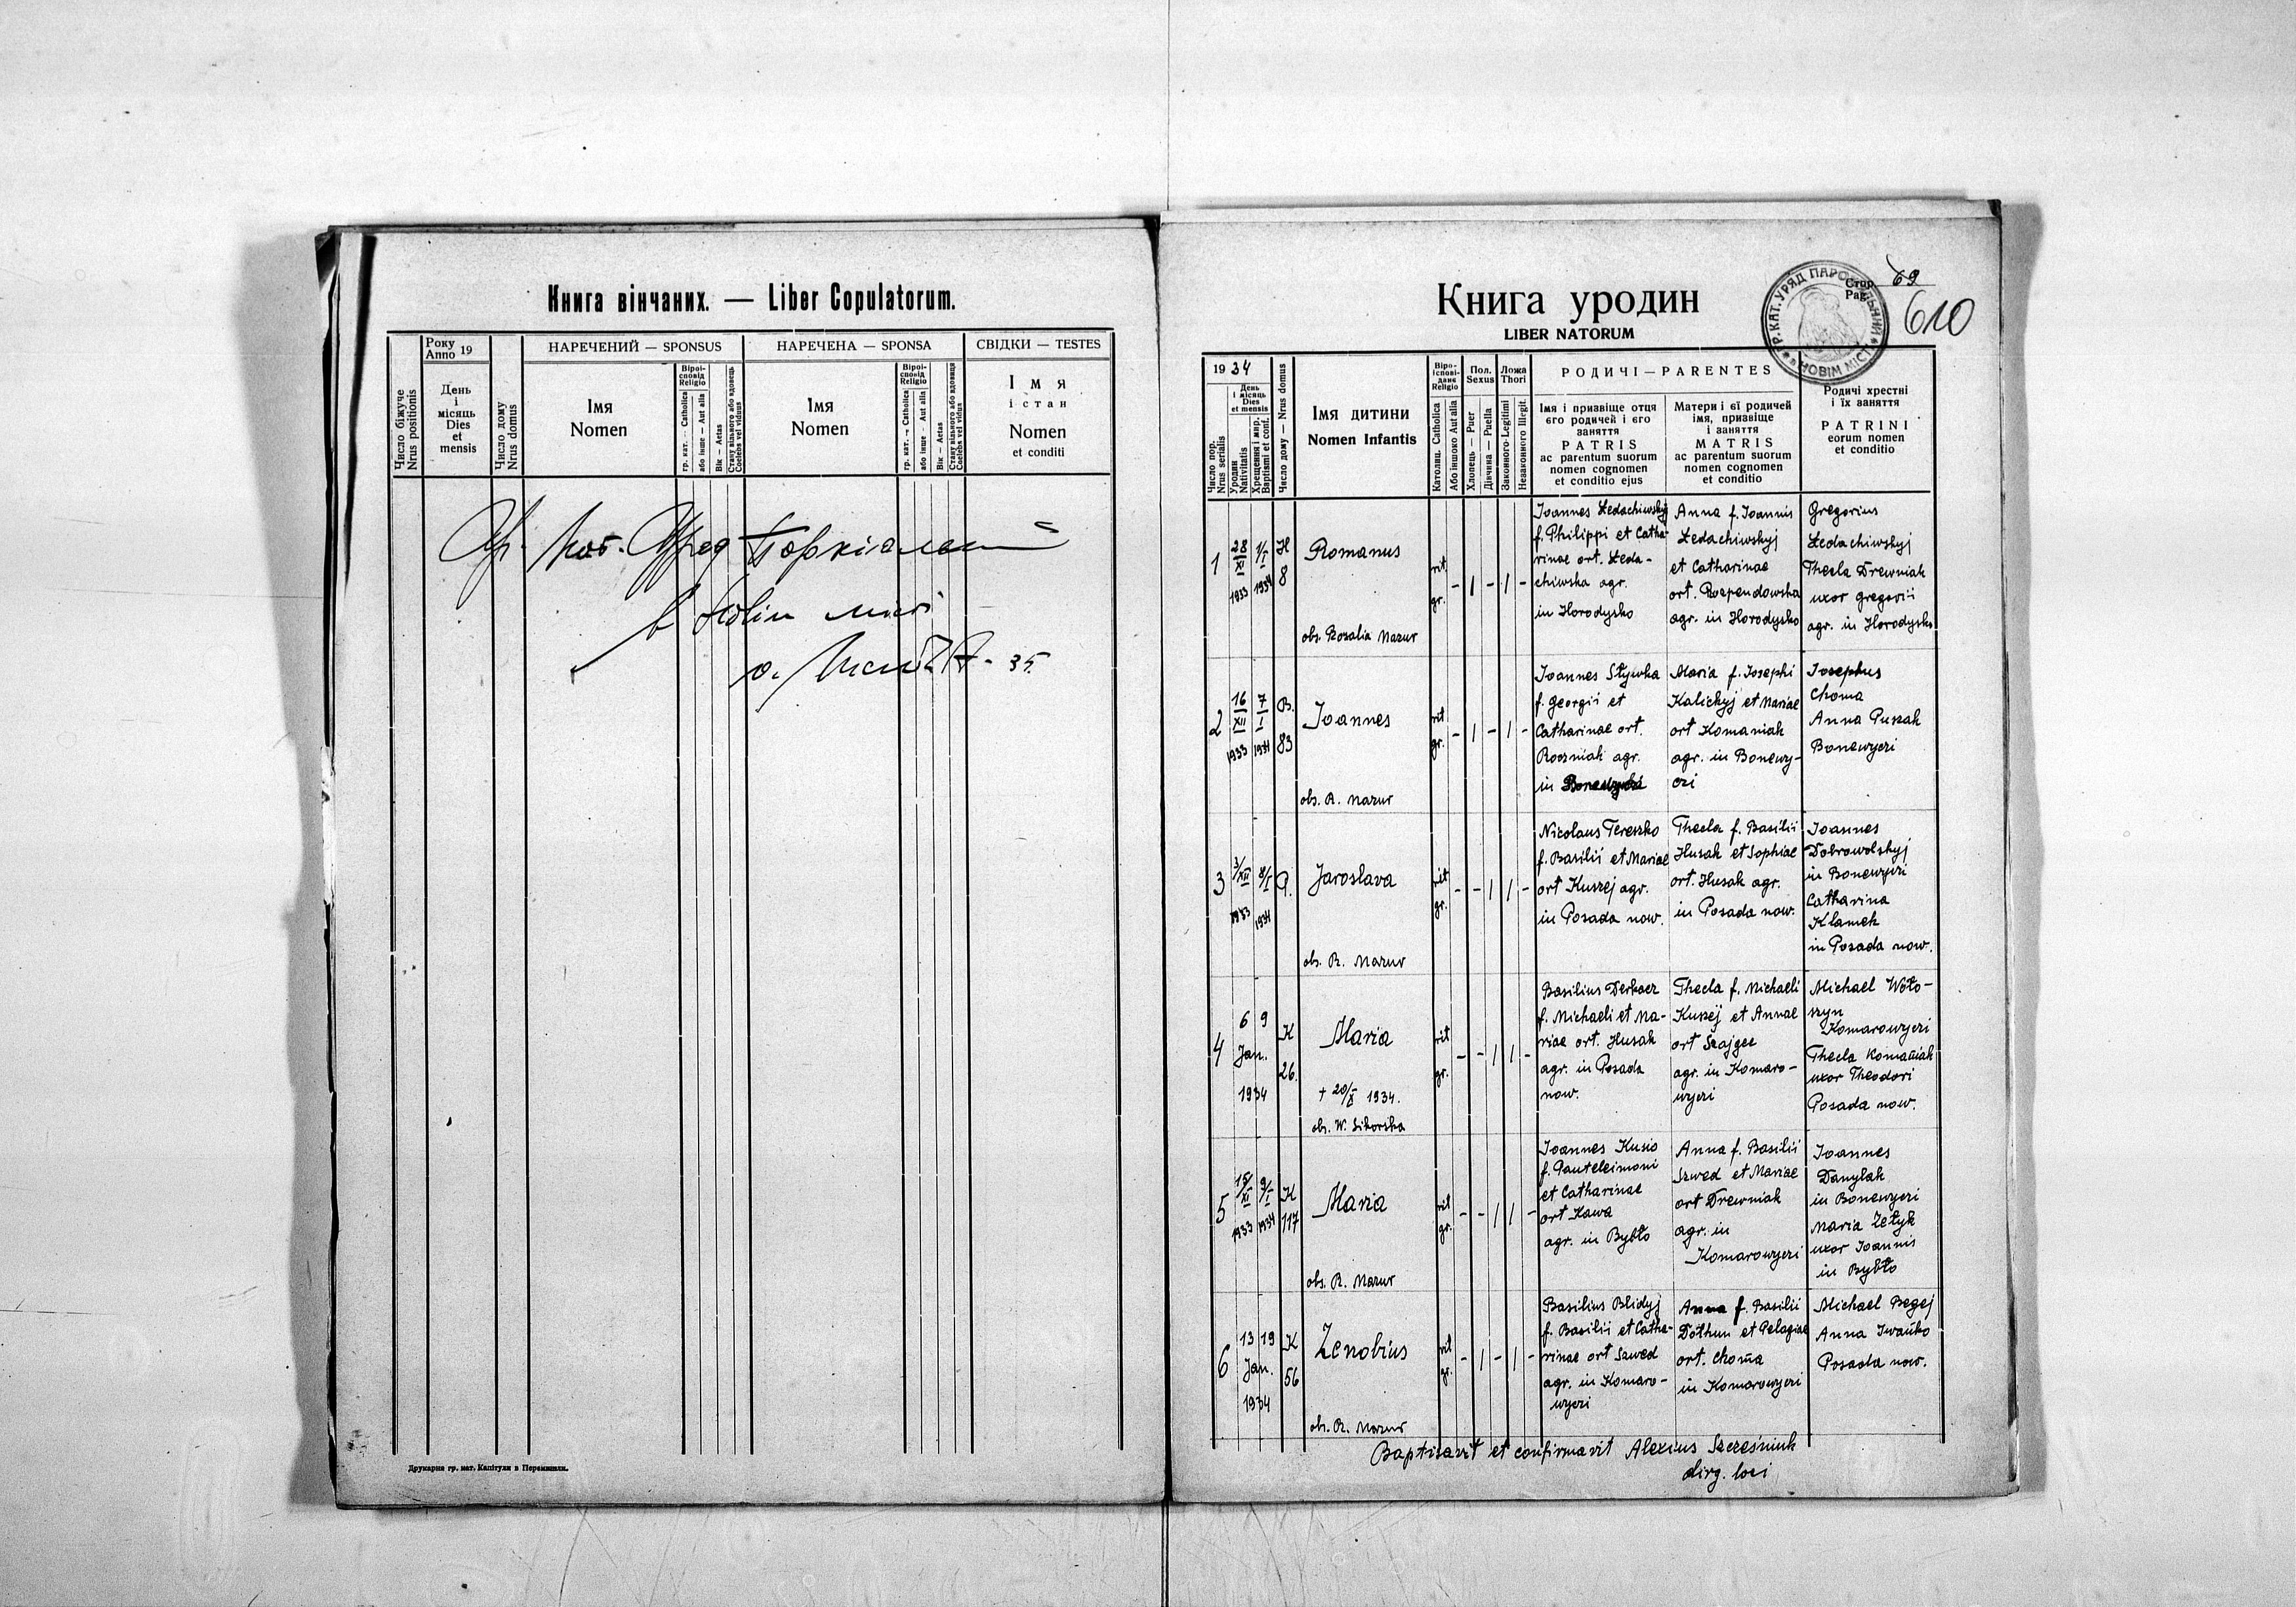 Книга вінчаних. — Liber Copulatorum.
Число біжуче
Nrus positionis
Року
Anno 19
День
і
місяць
Dies
et
mensis
Число дому
Nrus domus
НАРЕЧЕНИЙ — SPONSUS
Імя
Nomen
Віроі-
сповід
Religio
гр. кат. — Catholica
або інше — Aut alia
Вік — Aetas
Стану вільного або вдовець
Coelebs vel viduus
НАРЕЧЕНА — SPONSA
Імя
Nomen
Віроі-
сповід
Religio
гр. кат. — Catholica
або інше — Aut alia
Вік — Aetas
Стану вільного або вдовиця
Coelebs vel vidua
СВІДКИ — TESTES
Імя
і стан
Nomen
et conditi
Гр. кат. Уряд Парохіальний
в Новім місті
35.
Друкарня гр. кат. Капітули в Перемишли.
Книга уродин
LIBER NATORUM
ГР. КАТ. УРЯД ПАРОХІАЛЬНИЙ
в НОВІМ МІСТІ
Стор.
Pag.
69
610
1934
Число пор.
Nrus serialis
День
і місяць
Dies
et mensis
Уродин
Nativitatis
Хрещення і мир.
Baptismi et conf.
Число дому — Nrus domus
Імя дитини
Nomen Infantis
Віро-
ісповід-
данє
Religio
Католиц. Catholica
Або іншою Aut alia
Пол.
Sexus
Хлопець — Puer
Дівчина — Puella
Ложа
Thori
Законного-Legitimi
Незаконного Illegit.
РОДИЧІ — PARENTES
Імя і призвіще отця
єго родичей і єго
заняття
PATRIS
ac parentum suorum
nomen cognomen
et conditio ejus
Матери і єї родичей
імя, призвіще
і заняття
MATRIS
ac parentum suorum
nomen cognomen
et conditio
Родичі хрестні
і їх заняття
PATRINI
eorum nomen
et conditio
1
28/XI 1933
1/I 1934
H 8
Romanus
obs. Rozalia Mazur
rit. gr.
- / - / -
Ioannes Ledachiwskyj
f. Philippi et Catha-
rinae ort. Leda-
chiwska agr.
in Horodysko
Anna f. Ioannis
Ledachiwskyj
et Catharinae
ort. Rozpendowska
agr. in Horodysko
Gregorius
Ledachiwskyj
Thecla Drewniak
uxor Gregorii
agr. in Horodysko
2
16/XII 1933
7/I 1934
B. 83
Ioannes
obs. R. Mazur
rit gr.
- / - / -
Ioannes Stywka
f. Georgii et
Catharinae ort.
Roczniak agr.
in
Maria f. Iosephi
Kalickyj et Mariae
ort Komaniak
agr. in Bonewy-
czi
Iosephus
Choma
Anna Puszak
Bonewyczi
3
3/XII 1933
8/I 1934
P.
Jaroslava
obs. R. Mazur
rit gr.
- - / / -
Nicolaus Tereszko
f. Basilii et Mariae
ort Kuszej agr.
in Posada now.
Thecla f. Basilii
Husak et Sophiae
ort. Husak agr.
in Posada now.
Ioannes
Dobrowolskyj
in Bonewyczi
Catharina
Klamek
in Posada now.
4
6 9
Jan.
1934
K
26.
Maria
+ 20/X 1934.
obs. W. Sikorska
rit gr.
- - / / -
Basilius Derkacz
f. Michaeli et Ma-
riae ort. Husak
agr. in Posada
now.
Thecla f. Michaeli
Kuszej et Annae
ort Szajgec
agr. in Komaro-
wyczi
Michael Woło-
szyn
Komarowyczi
Thecla Komaniak
uxor Theodori
Posada now.
5
15/XI 1933
9/I 1934
K
117
Maria
obs. R. Mazur
rit gr.
- - / / -
Ioannes Kusio
f. Panteleimoni
et Catharinae
ort Kawa
agr. in Bybło
Anna f. Basilii
Szwed et Mariae
ort Drewniak
agr. in
Komarowyczi
Ioannes
Danylak
in Bonewyczi
Maria Zełyk
uxor Ioannis
in Bybło
6
13 19
Jan.
1934
K
56
Zenobius
obs. R. Mazur
rit gr.
- / - / -
Basilius Blidyj
f. Basilii et Catha-
rinae ort Szwed
agr. in Komaro-
wyczi
Anna f. Basilii
Dołhun et Pelagiae
ort. Choma
in Komarowyczi
Michael Begej
Anna Iwańko
Posada now.
Baptisavit et confirmavit Alexius Szcześniuk
dirg. loci